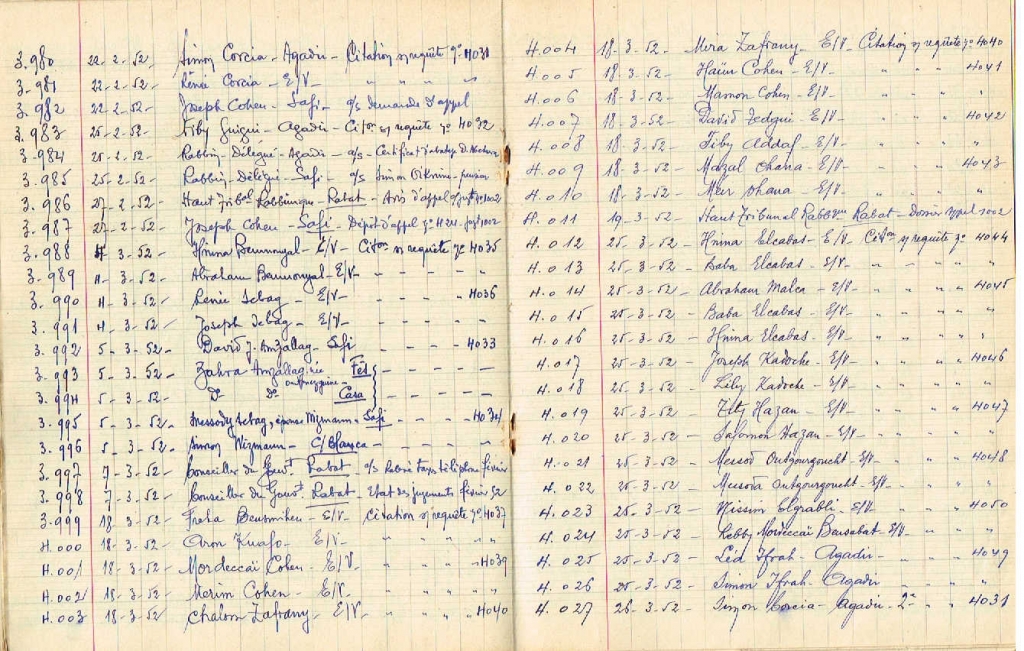 3.980 22-2-52- Simon Corcia - Agadir - Citation s/ requête nº 4031
3.981 22-2-52- Rénée Corcia - E/V- " " " "
3.982 22-2-52- Joseph Cohen - Safi - a/s demande d'appel
3.983 25-2-52- Guigui - Agadir - Citon s/ requête nº 4032
3.984 25-2-52- Rabbin-Délégué - Agadir - a/s - Certificat d'abatage
3.985 25-2-52- Rabbin-Délégué - Safi - a/s Simon
3.986 27-2-52- Haut Tribal Rabbinique - Rabat - Avis d'appel 1002
3.987 27-2-52- Joseph Cohen - Safi - Dépôt d'appel 1002
3.988 4-3-52- Hnina - E/V- Citon s/ requête nº 4035
3.989 4-3-52- Abraham - E/V- - - - "
3.990 4-3-52- Rénée Sebag - E/V- - - - 4036
3.991 4-3-52- Joseph Sebag - E/V- - - - -
3.992 5-3-52- David J. Amzallag - Safi - - - 4033
3.993 5-3-52- Zahra Amzallag née Fès - - -
3.994 5-3-52- Do Do Casa - - -
3.995 5-3-52- Messody Sebag, épouse Wizmann - Safi - - 4034
3.996 5-3-52- Wizmann - C/Blanca - - - -
3.997 7-3-52- Conseiller du Gouvt Rabat - a/s taxes téléphone février
3.998 7-3-52- Conseiller du Gouvt Rabat - Etat des jugements février 52
3.999 18-3-52- Freha - E/V- Citation s/ requête nº 4037
4.000 18-3-52- Aron - E/V- " " " "
4.001 18-3-52- Mordeccaï Cohen - E/V- " " " 4039
4.002 18-3-52- Cohen - E/V- " " " "
4.003 18-3-52- Chalom Zafrany - E/V- " " " 4040
4.004 18-3-52- Zafrany - E/V- Citation s/ requête nº 4040
4.005 18-3-52- Haïm Cohen - E/V- " " " 4041
4.006 18-3-52- Mamon Cohen - E/V- " " " "
4.007 18-3-52- David - E/V- " " " 4042
4.008 18-3-52- Addaf - E/V- " " " "
4.009 18-3-52- Mazal Ohana - E/V- " " " 4043
4.010 18-3-52- Meir Ohana - E/V- " " " "
4.011 19-3-52- Haut Tribunal Rabbique Rabat - Dossier appel 1002
4.012 25-3-52- Hnina Elcabas - E/V- Citon s/ requête nº 4044
4.013 25-3-52- Baba Elcabas - E/V- " " " "
4.014 25-3-52- Abraham Malca - E/V- " " " 4045
4.015 25-3-52- Baba Elcabas - E/V- " " " "
4.016 25-3-52- Hnina Elcabas - E/V- " " " "
4.017 25-3-52- Joseph Kadoche - E/V- " " " 4046
4.018 25-3-52- Lily Kadoche - E/V- " " " "
4.019 25-3-52- Hazan - E/V- " " " 4047
4.020 25-3-52- Salomon Hazan - E/V- " " " "
4.021 25-3-52- Messod Outgourgoucht - E/V- " " 4048
4.022 25-3-52- Messoda Outgourgoucht - E/V- " " "
4.023 25-3-52- Nissim Elgrabli - E/V- " " " 4050
4.024 25-3-52- Rebby Mordeccaï - E/V- " " "
4.025 25-3-52- Ifrah - Agadir - " " 4049
4.026 25-3-52- Simon Ifrah - Agadir " " "
4.027 26-3-52- Simon Corcia - Agadir - 2e " " 4031